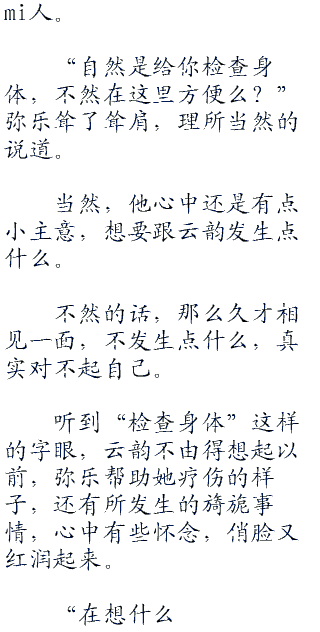 mi人。
“自然是给你检查身
体，不然在这里方便么？”
弥乐耸了耸肩，理所当然的
说道。
当然，他心中还是有点
小主意，想要跟云韵发生点
什么。
不然的话，那么久才相
见一面，不发生点什么，真
实对不起自己。
听到“检查身体”这样
的字眼，云韵不由得想起以
前，弥乐帮助她疗伤的样
子，还有所发生的旖旎事
情，心中有些怀念，俏脸又
红润起来。
“在想什么